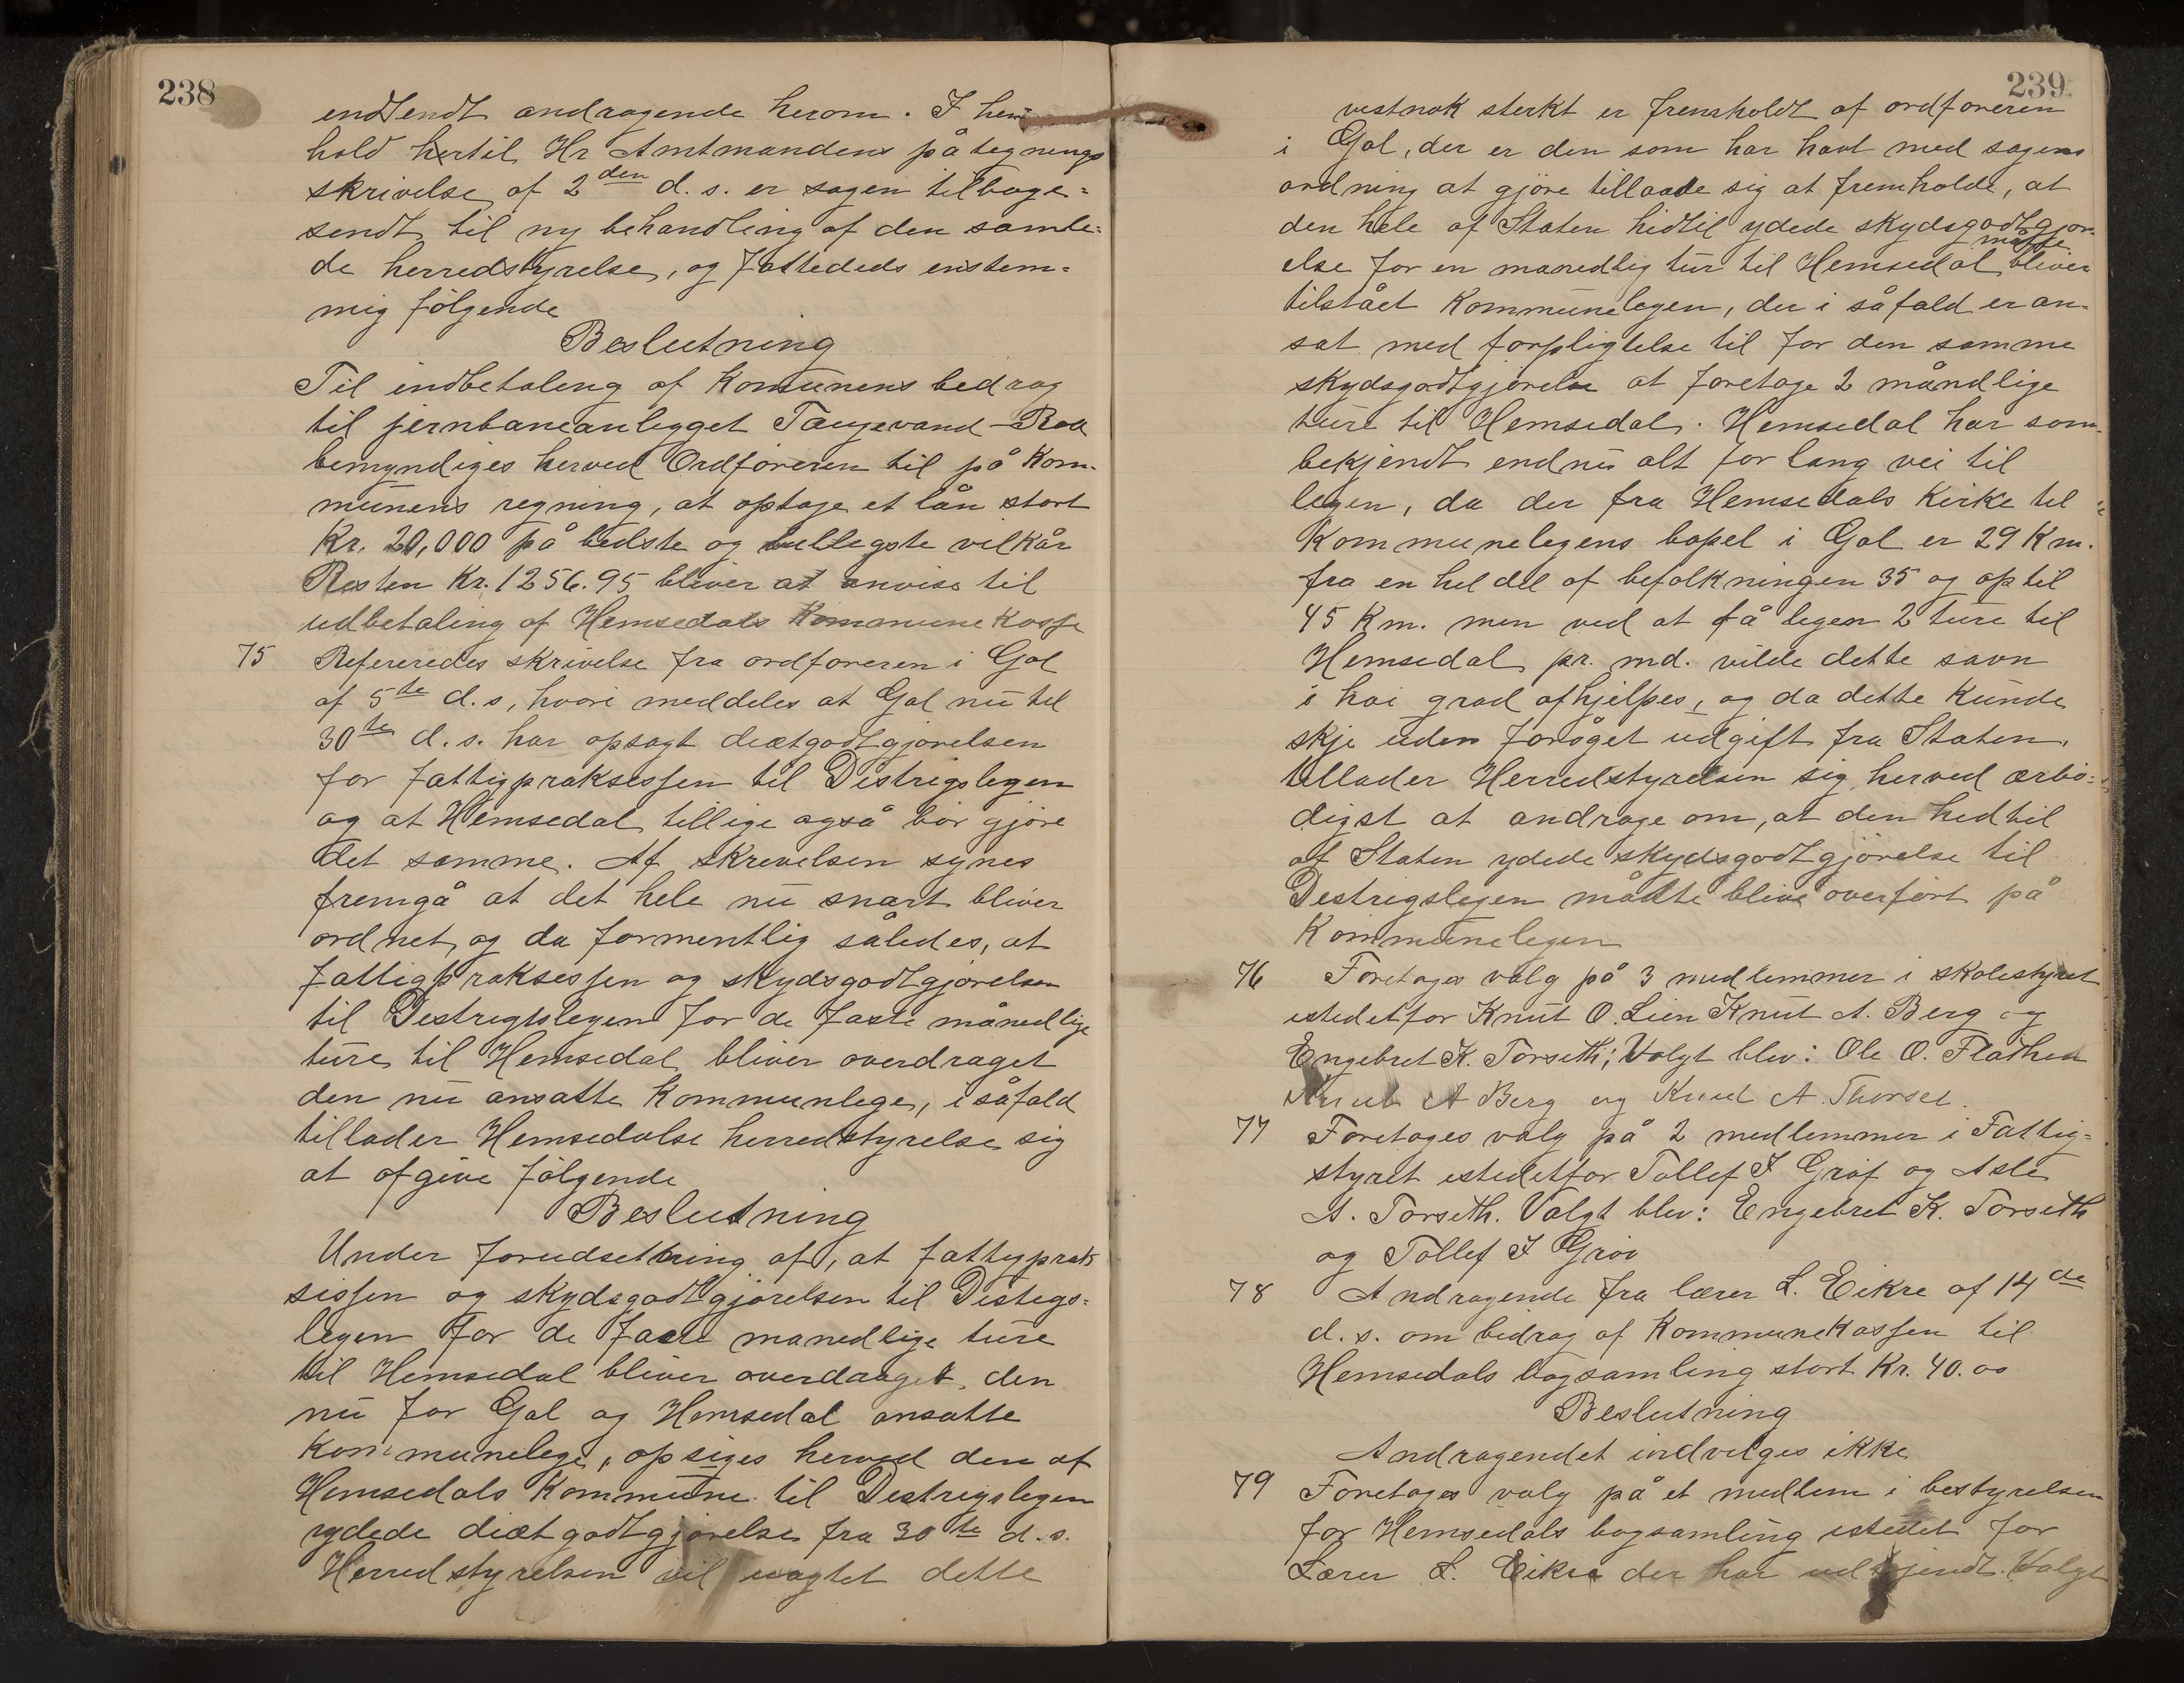 238
endsendt andragende herom. I hen
hold hertil Hr Amtmandens påtegnings
skrivelse af 2den d.s. er sagen tilbage=
sendt til ny behandling af den samle=
de herredstyrelse, og fattededs enstem=
mig følgende
Beslutning
Til indbetaleng af Komunens bedrag
til jernbaneanlegget Taugevand-Roa
bemyndiges herved Ordføreren til på Kom-
munens regning, at optage et lån stort
Kr. 20,000 på bedste og billegste vilkår
Resten Kr. 1256.95 bliver at anvise til
udbetaling af Hemsedals Kommune Kasse
75 Refereredes skrivelse fra ordføreren i Gol
af 5te d.s, hvori meddeles at Gol nu til
30te d.s. har opsagt diætgodtgjørelsen
for fattigpraksessen til Distrigslegen
og at Hemsedal tillige også bør gjøre
det samme. Af skrevelsen synes
fremgå at det hele nu snart bliver
ordnet, og da formentlig således, at
fattigpraksessen og skydsgodtgjørelsen
til Destrigtslegen for de faste månedlige
ture til Hemsedal bliver overdraget
den nu ansatte Kommunlege, i såfald
tillader Hemsedalse herredstyrelse sig
at afgive følgende
Beslutning
Under forudsetning af, at fattigprak
sissen og skydsgodtgjørelsen til Distegs=
legen for de faste manedlige ture
til Hemsedal bliver overdraget den
nu for Gol og Hemsedal ansatte
Kommunelege, opsiges herved den af
Hemsedals Kommune til Destrigslegen
ydede diætgodtgjørelse fra 30te d.s.
Herredstyrelsen vil uagtet dette
239
vestnok sterkt er fremholdt af ordføreren
i Gol, der er den som har havt med sagens
ordning at gjøre tillade sig at fremholde, at
den hele af Staten hidtil ydede skydsgodtgjør-
måtte
else for en manedlig tur til Hemsedal bliver
tilstået Kommunelegen, der i såfald er an-
sat med forpligtelse til for den samme
skydsgodtgjørelse at foretage 2 måndlige
ture til Hemsedal. Hemsedal har som
bekjendt endnu alt for lang vei til
legen, da der fra Hemsedals Kirke til
Kommunelegens bopel i Gol er 29 Km.
fra en hel del af befolkningen 35 og optil
45 Km. men ved at få legen 2 ture til
Hemsedal pr. md. vilde dette savn
i høi grad afhjelpes, og da dette kunde
skje uden forøget udgift fra Staten,
tillader Herredstyrelsen sig herved ærbø=
digst at andrage om, at den hedtil
af Staten ydede skydsgodtgjørelse til
Destrigslegen måtte blive overført på
Kommunelegen
76 Foretages valg på 3 medlemmer i skolestyret
istedetfor Knut O. Lien Knut A. Berg og
Engebret K. Torseth; Valgt blev: Ole O. Flathen
Knud A Berg og Knud A. Thorset.
77 Foretages valg på 2 medlemmer i Fattig=
styret istedetfor Tollef I Grøf og Asle
A. Torseth. Valgt blev: Engebret K. Torseth
og Tollef I Grøv
78 Andragende fra lærer L. Eikre af 14de
d.s. om bidrag af Kommunekassen til
Hemsedals bogsamling stort Kr. 40.00
Beslutning
Andragendet indvelges ikke
79 Foretages valg på et medlem i bestyrelsen
for Hemsedals bogsamling istedet for
Lærer L. Eikre der har udtjendt. Valgt